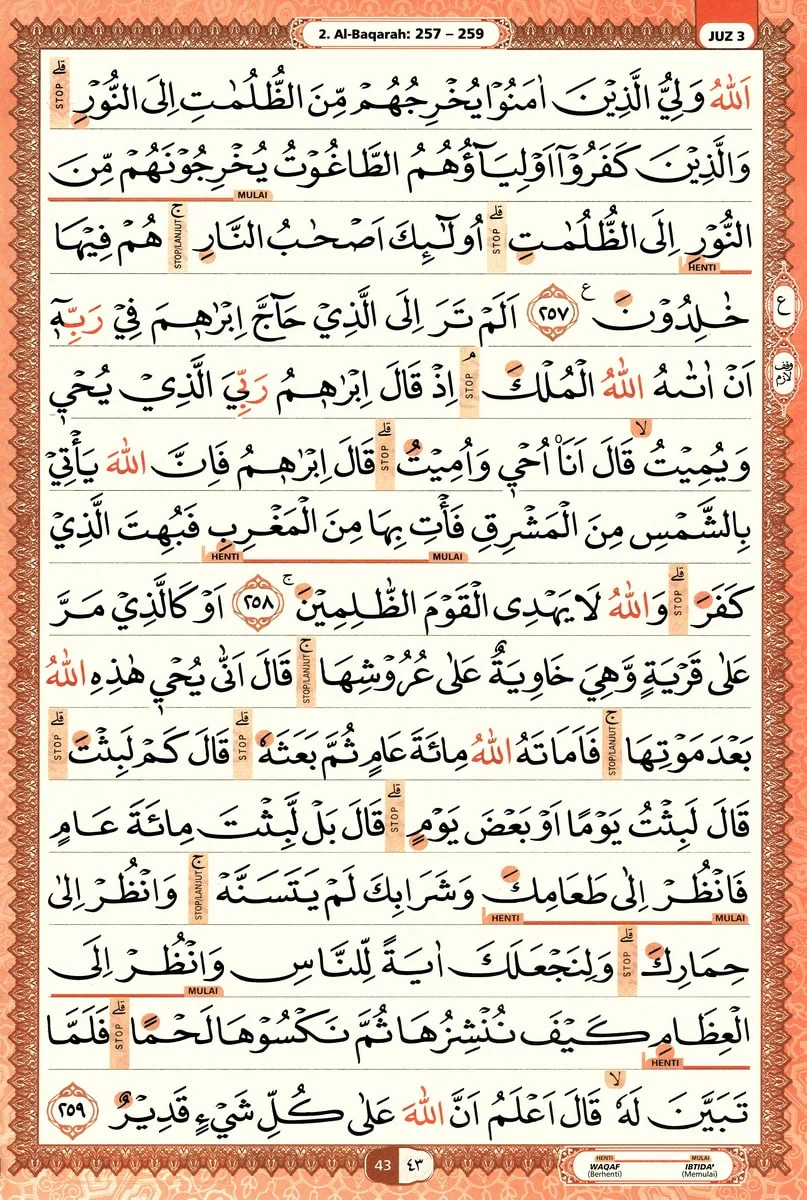 2. Al-Baqarah: 257 – 259
JUZ 3
اَللّٰهُ وَلِيُّ الَّذِيْنَ اٰمَنُوْا يُخْرِجُهُمْ مِّنَ الظُّلُمٰتِ اِلَى النُّوْرِۗ STOP
وَالَّذِيْنَ كَفَرُوْٓا اَوْلِيَاۤؤُهُمُ الطَّاغُوْتُ يُخْرِجُوْنَهُمْ مِّنَ
MULAI
النُّوْرِ اِلَى الظُّلُمٰتِۗ STOP اُولٰۤىِٕكَ اَصْحٰبُ النَّارِۚ STOP/LANJUT هُمْ فِيْهَا
HENTI
خٰلِدُوْنَ ࣖ ٢٥٧ اَلَمْ تَرَ اِلَى الَّذِيْ حَاۤجَّ اِبْرٰهٖمَ فِيْ رَبِّهٖٓ
ع
اَنْ اٰتٰىهُ اللّٰهُ الْمُلْكَۘ STOP اِذْ قَالَ اِبْرٰهٖمُ رَبِّيَ الَّذِيْ يُحْيٖ
وقف لازم
وَيُمِيْتُۙ قَالَ اَنَا۠ اُحْيٖ وَاُمِيْتُۗ STOP قَالَ اِبْرٰهٖمُ فَاِنَّ اللّٰهَ يَأْتِيْ
بِالشَّمْسِ مِنَ الْمَشْرِقِ فَأْتِ بِهَا مِنَ الْمَغْرِبِ فَبُهِتَ الَّذِيْ
MULAI HENTI
كَفَرَۗ STOP وَاللّٰهُ لَا يَهْدِى الْقَوْمَ الظّٰلِمِيْنَۚ ٢٥٨ اَوْ كَالَّذِيْ مَرَّ
عَلٰى قَرْيَةٍ وَّهِيَ خَاوِيَةٌ عَلٰى عُرُوْشِهَاۚ STOP/LANJUT قَالَ اَنّٰى يُحْيٖ هٰذِهِ اللّٰهُ
بَعْدَ مَوْتِهَاۚ STOP/LANJUT فَاَمَاتَهُ اللّٰهُ مِائَةَ عَامٍ ثُمَّ بَعَثَهٗۗ STOP قَالَ كَمْ لَبِثْتَۗ STOP
قَالَ لَبِثْتُ يَوْمًا اَوْ بَعْضَ يَوْمٍۗ STOP قَالَ بَلْ لَّبِثْتَ مِائَةَ عَامٍ
فَانْظُرْ اِلٰى طَعَامِكَ وَشَرَابِكَ لَمْ يَتَسَنَّهْۚ STOP/LANJUT وَانْظُرْ اِلٰى
MULAI HENTI
حِمَارِكَۗ STOP وَلِنَجْعَلَكَ اٰيَةً لِّلنَّاسِ وَانْظُرْ اِلَى
MULAI
الْعِظَامِ كَيْفَ نُنْشِزُهَا ثُمَّ نَكْسُوْهَا لَحْمًاۗ STOP فَلَمَّا
HENTI
تَبَيَّنَ لَهٗۙ قَالَ اَعْلَمُ اَنَّ اللّٰهَ عَلٰى كُلِّ شَيْءٍ قَدِيْرٌ ٢٥٩
43 ٤٣
HENTI MULAI
WAQAF IBTIDA'
(Berhenti) (Memulai)